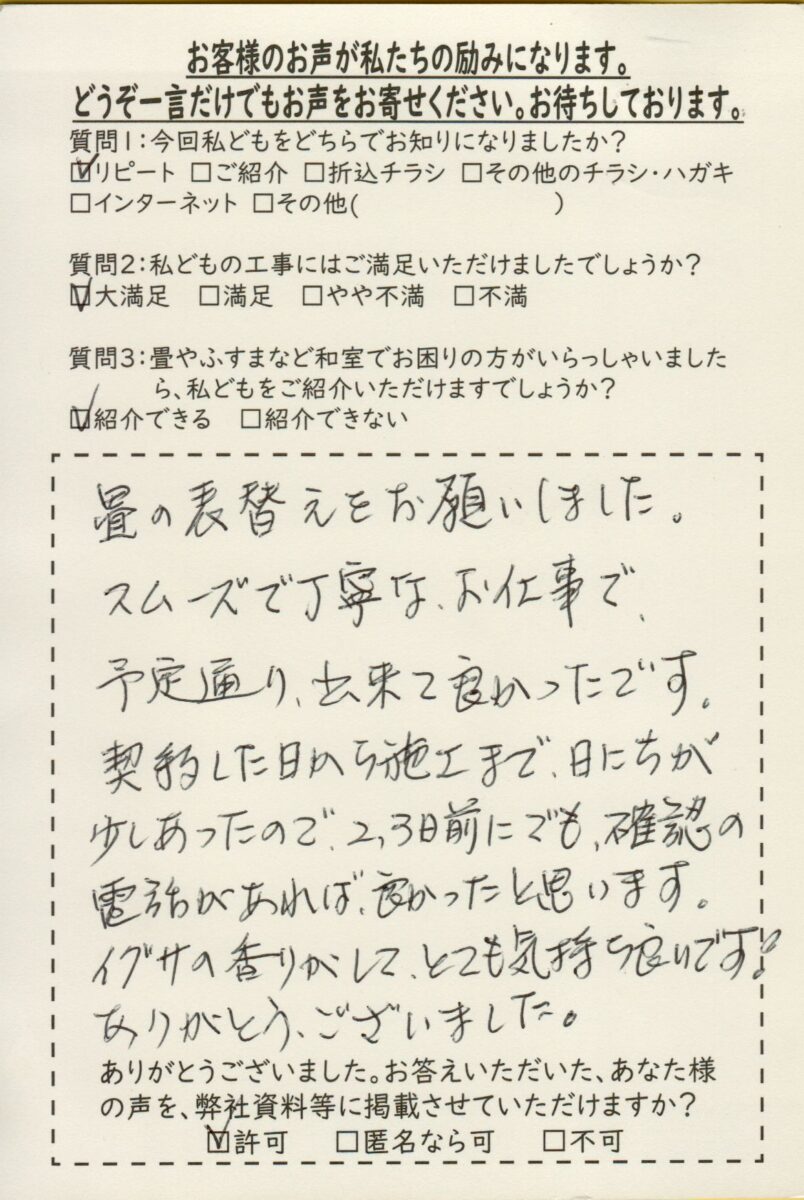 お客様のお声が私たちの励みになります。
どうぞ一言だけでもお声をお寄せください。お待ちしております。
質問1:今回私どもをどちらでお知りになりましたか?
☑リピート □ご紹介 □折込チラシ □その他のチラシ・ハガキ
□インターネット □その他( )
質問2:私どもの工事にはご満足いただけましたでしょうか?
☑大満足 □満足 □やや不満 □不満
質問3:畳やふすまなど和室でお困りの方がいらっしゃいました
ら、私どもをご紹介いただけますでしょうか?
☑紹介できる □紹介できない
畳の表替えをお願いしました。
スムーズで丁寧な、お仕事で、
予定通り、出来て良かったです。
契約した日から施工まで、日にちが
少しあったので、2,3日前にでも、確認の
電話があれば、良かったと思います。
イグサの香りがして、とても気持ち良いです!
ありがとう、ございました。
ありがとうございました。お答えいただいた、あなた様
の声を、弊社資料等に掲載させていただけますか?
☑許可 □匿名なら可 □不可